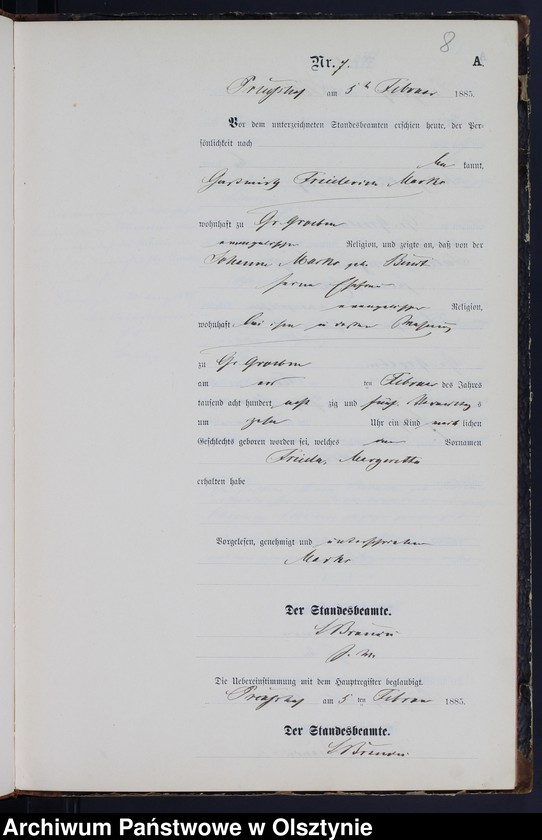 8
Nr. 7. A
am 5 ten Februar 1885.
Vor dem unterzeichneten Standesbeamten erschien heute, der Per-
sönlichkeit nach
be kannt,
Friederich Marks
wohnhaft zu Gr. Groeben
evangelischer Religion, und zeigte an, daß von der
Johanna Marks geb.
seine Ehefrau
evangelischer Religion,
wohnhaft bei ihm in
zu Gr. Groeben
am ten Februar des Jahres
tausend acht hundert acht zig und fünf Vormittag s
um zehn Uhr ein Kind weib lichen
Geschlechts geboren worden sei, welches die Vornamen
Frieda, Margaretha
erhalten habe
Vorgelesen, genehmigt und unterschrieben
Marks
Der Standesbeamte.
Die Uebereinstimmung mit dem Hauptregister beglaubigt.
am 5 ten Februar 1885.
Der Standesbeamte.
Archiwum Państwowe w Olsztynie